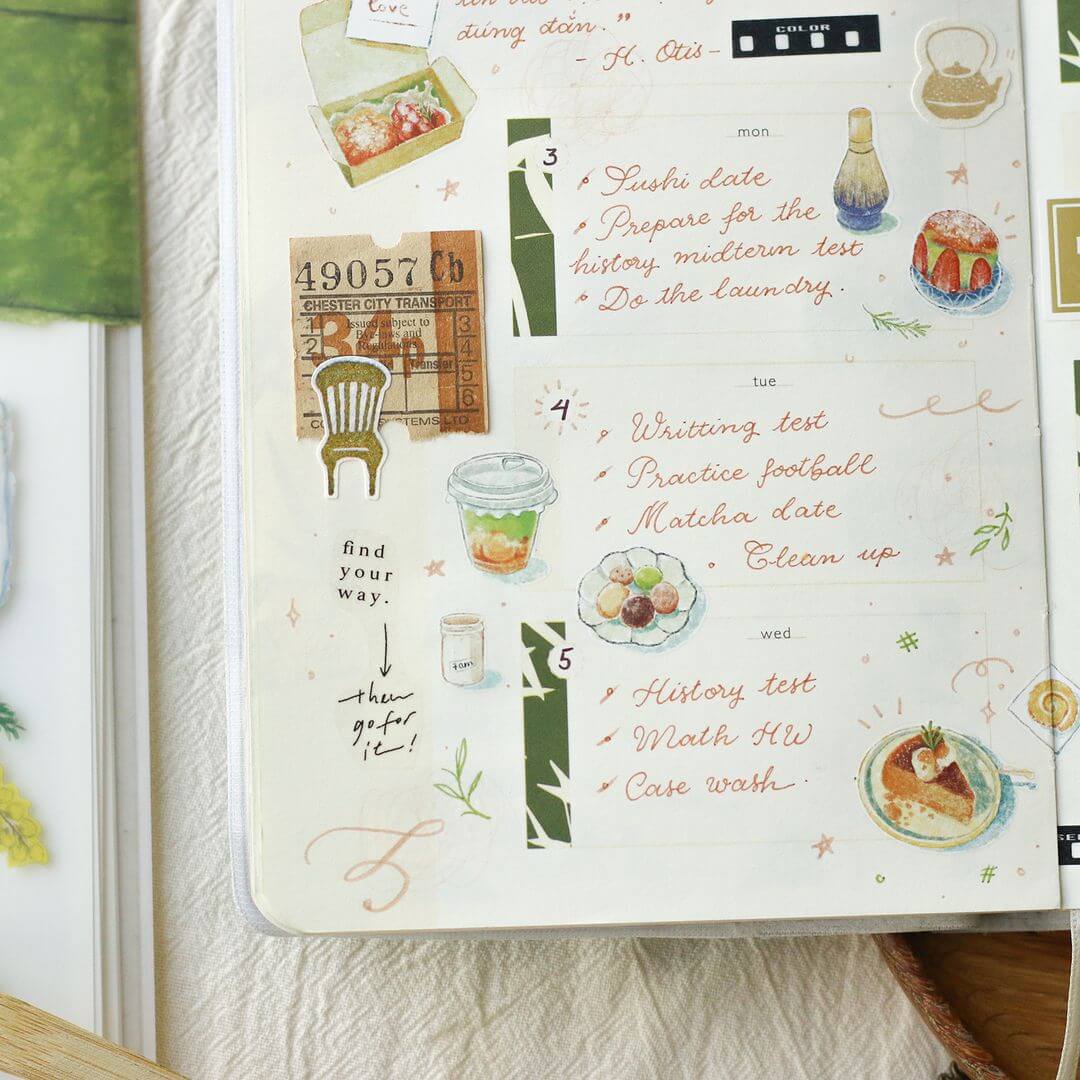 love
đúng đắn."
- H. Otis -
COLOR
mon
3
Sushi date
Prepare for the
history midterm test
Do the laundry.
49057 Cb
CHESTER CITY TRANSPORT
Issued subject to
Bye-laws and
Regulations
Transfer
1
2
3
4
5
6
tue
4
Writting test
Practice football
Matcha date
Clean up
find
your
way.
then
go for
it!
wed
5
History test
Math HW
Case wash.
#
#